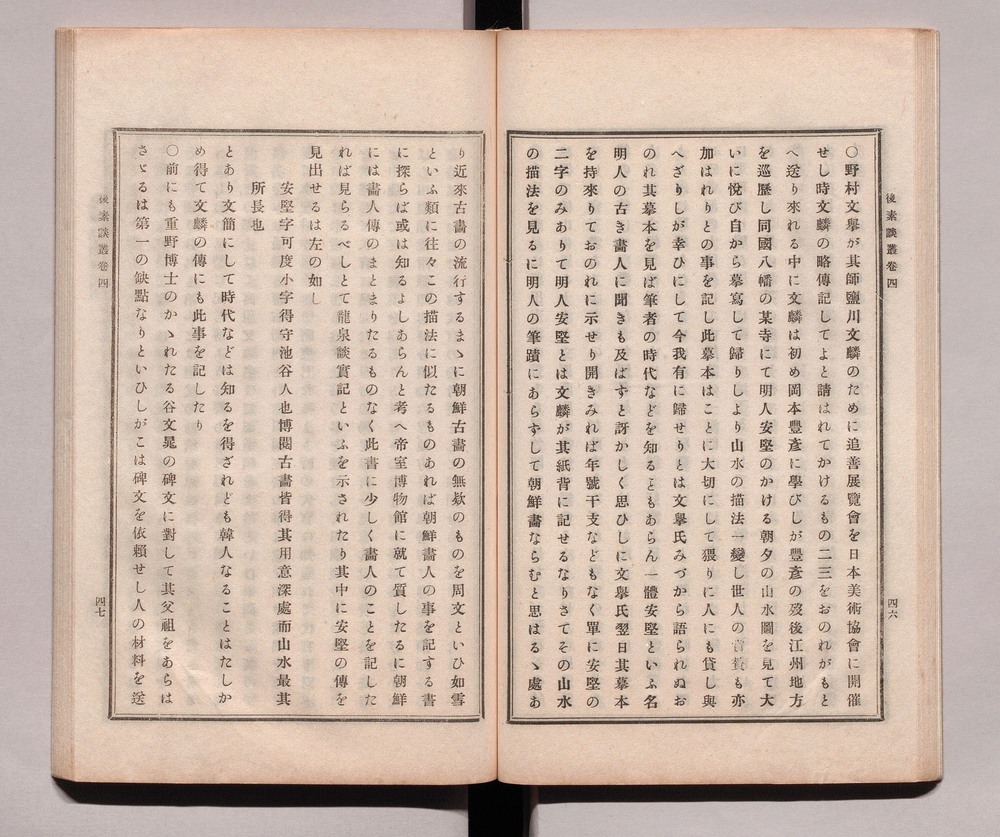 後素談叢卷四
四六
〇野村文擧が其師鹽川文麟のために追善展覽會を日本美術協會に開催
せし時文麟の略傳記してよと請はれてかけるもの二三をおのれがもと
へ送り來れる中に文麟は初め岡本豐彥に學びしが豐彥の歿後江州地方
を巡歷し同國八幡の某寺にて明人安堅のかける朝夕の山水圖を見て大
いに悅び自から摹寫して歸りしより山水の描法一變し世人の賞賛も亦
加はれりとの事を記し此摹本はことに大切にして猥りに人にも貸し與
へざりしが幸ひにして今我有に歸せりとは文擧氏みづから語られぬお
のれ其摹本を見ば筆者の時代などを知るともあらん一體安堅といふ名
明人の古き畵人に聞きも及ばずと訝かしく思ひしに文擧氏翌日其摹本
を持來りておのれに示せり開きみれば年號干支などもなく單に安堅の
二字のみありて明人安堅とは文麟が其紙背に記せるなりさてその山水
の描法を見るに明人の筆蹟にあらずして朝鮮畵ならむと思はるゝ處あ
り近來古畵の流行するまゝに朝鮮古畵の無欵のものを周文といひ如雪
といふ類に往々この描法に似たるものあれば朝鮮畵人の事を記する書
に探らば或は知るよしあらんと考へ帝室博物館に就て質したるに朝鮮
には畵人傳のまとまりたるものなく此書に少しく畵人のことを記した
れば見らるべしとて龍泉談實記といふを示されたり其中に安堅の傳を
見出せるは左の如し
安堅字可度小字得守池谷人也博閱古畵皆得其用意深處而山水最其
所長也
とあり文簡にして時代などは知るを得ざれども韓人なることはたしか
め得て文麟の傳にも此事を記したり
〇前にも重野博士のかゝれたる谷文晁の碑文に對して其父祖をあらは
さゞるは第一の缺點なりといひしがこは碑文を依賴せし人の材料を送
後素談叢卷四
四七